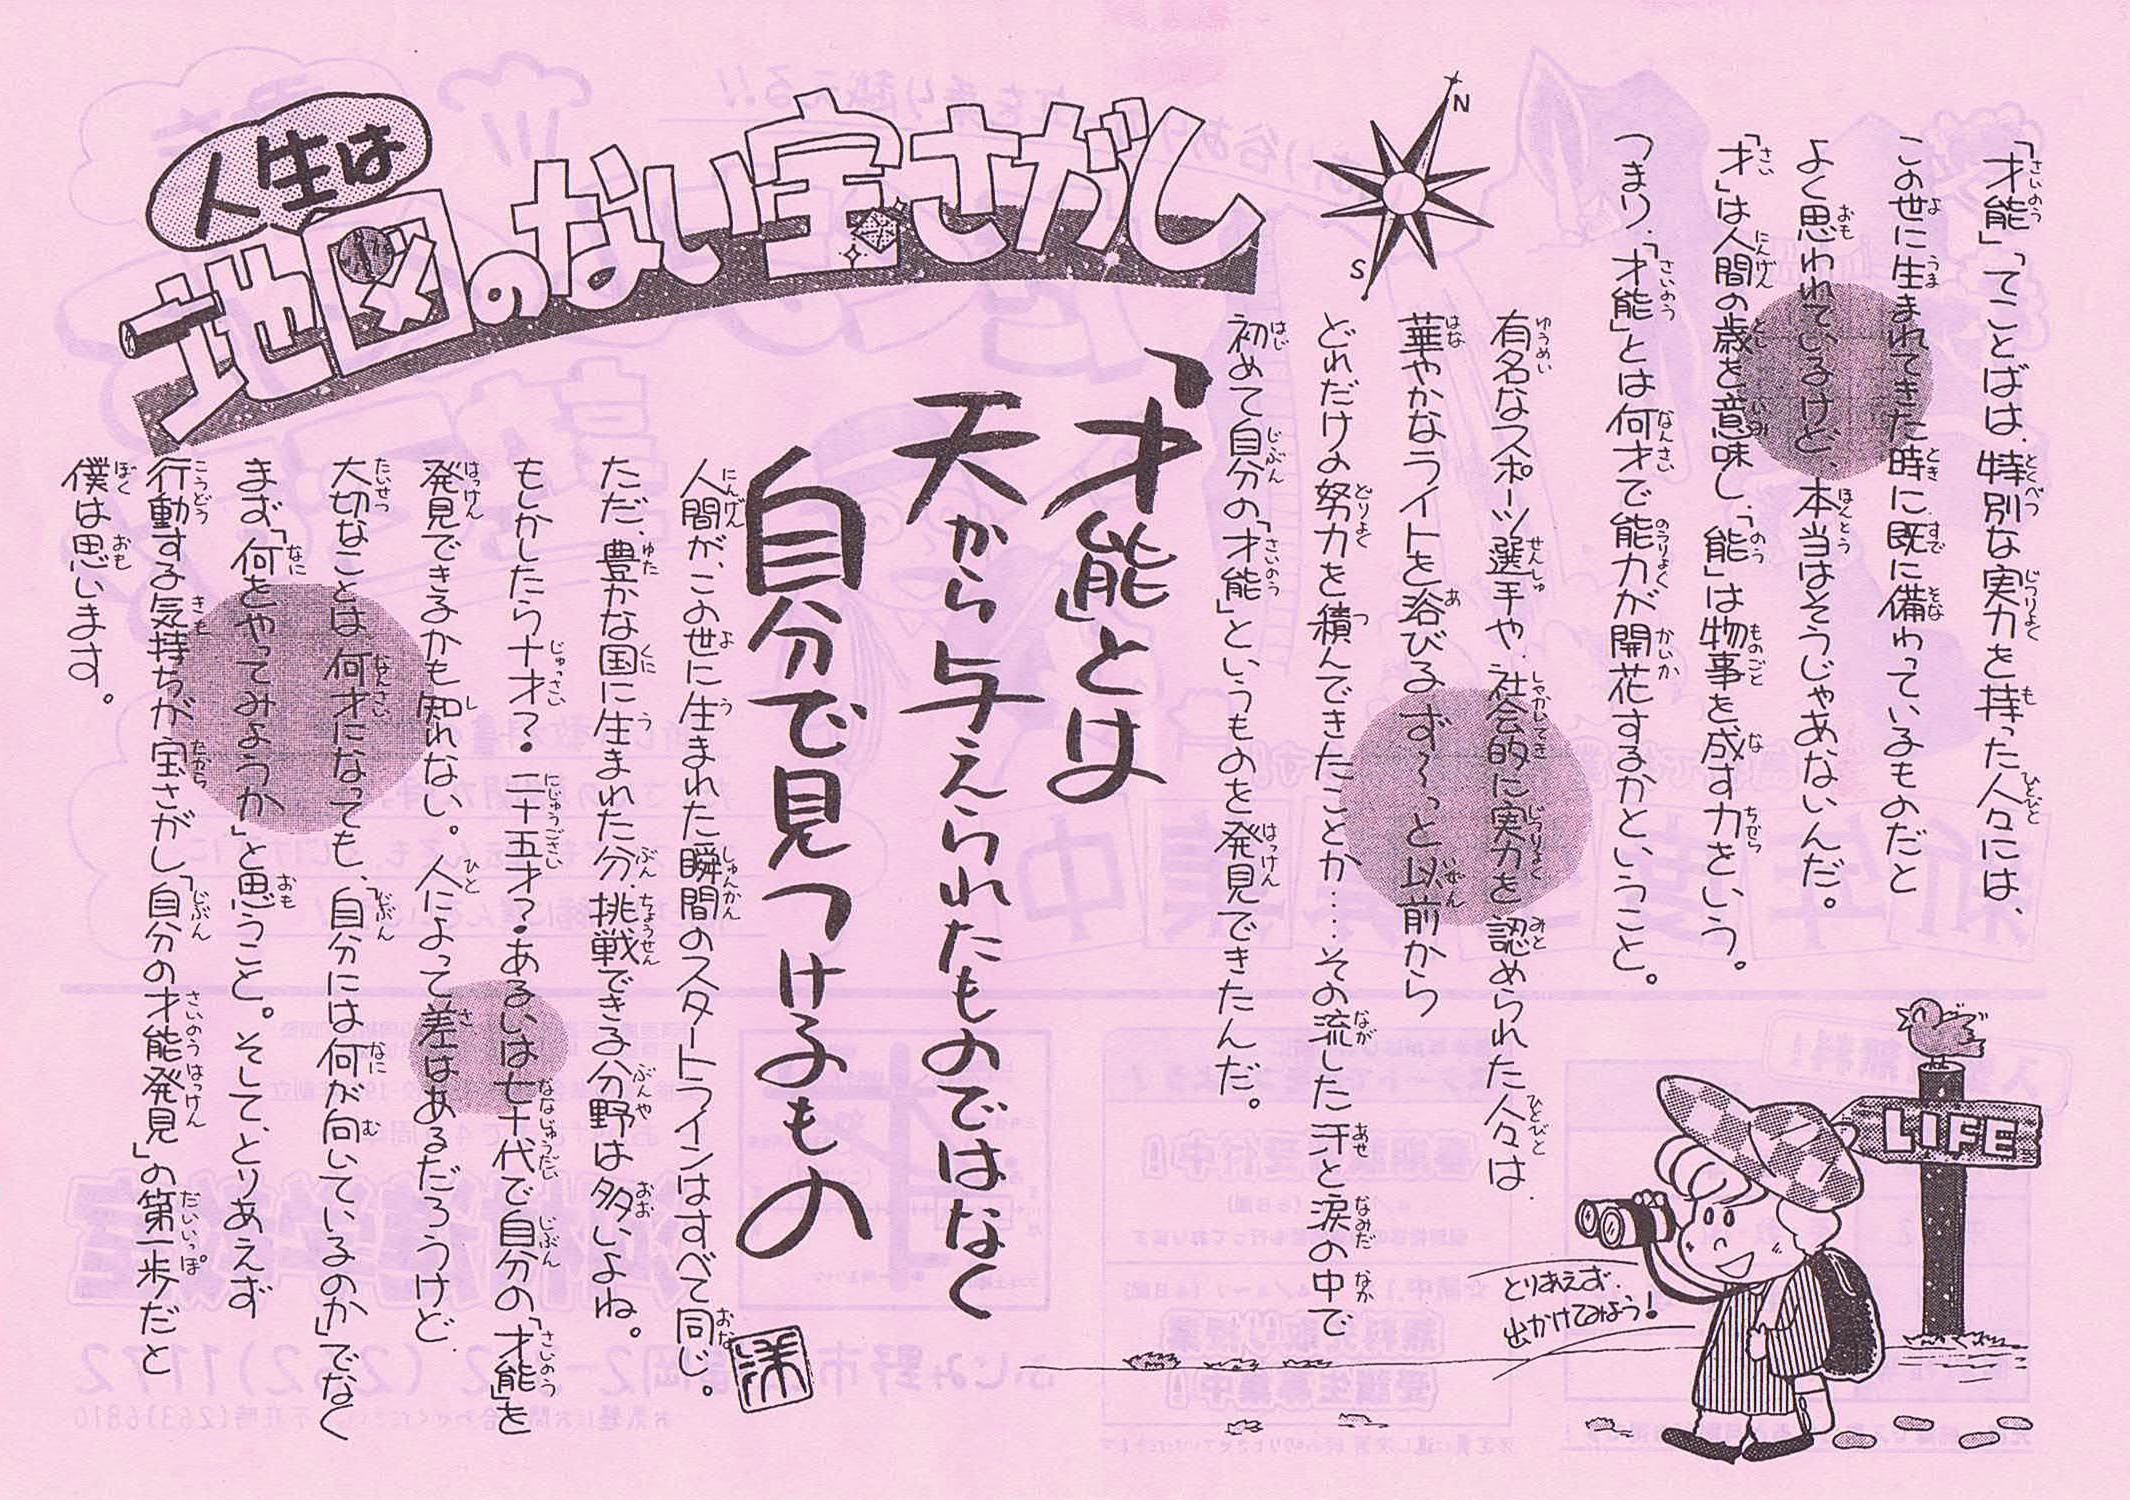 人生は
地図のない宝さがし
N
S
「才能」ってことばは、特別な実力を持った人々には、
この世に生まれてきた時に、既に備わっているものだと
よく思われているけど、本当はそうじゃあないんだ。
「才」は人間の歳を意味し、「能」は物事を成す力をいう。
つまり、「才能」とは何才で能力が開花するかということ。
有名なスポーツ選手や、社会的に実力を認められた人々は、
華やかなライトを浴びるず〜っと以前から
どれだけの努力を積んできたことか……その流した汗と涙の中で
初めて自分の「才能」というものを発見できたんだ。
「才能」とは
天から与えられたものではなく
自分で見つけるもの
人間が、この世に生まれた瞬間のスタートラインはすべて同じ。
ただ、豊かな国に生まれた分、挑戦できる分野は多いよね。
もしかしたら十才？・二十五才？・あるいは七十代で自分の「才能」を
発見できるかも知れない。人によって差はあるだろうけど、
大切なことは、何才になっても、「自分には何が向いているのか」でなく
まず「何をやってみようか」と思うこと。そして、とりあえず
行動する気持ちが宝さがし「自分の才能発見」の第一歩だと
僕は思います。
LIFE
とりあえず、
出かけてみよう！